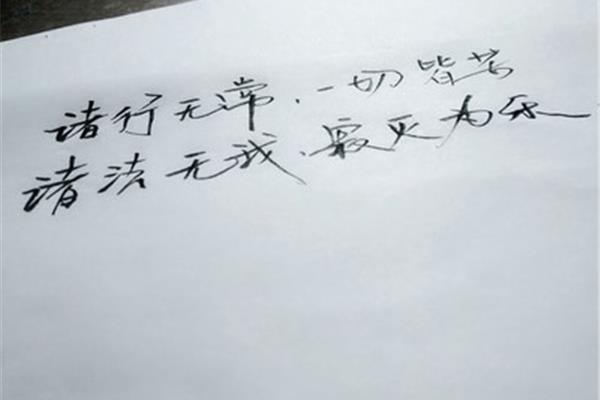 诸行无常.一切皆苦
诸法无我.寂灭为乐